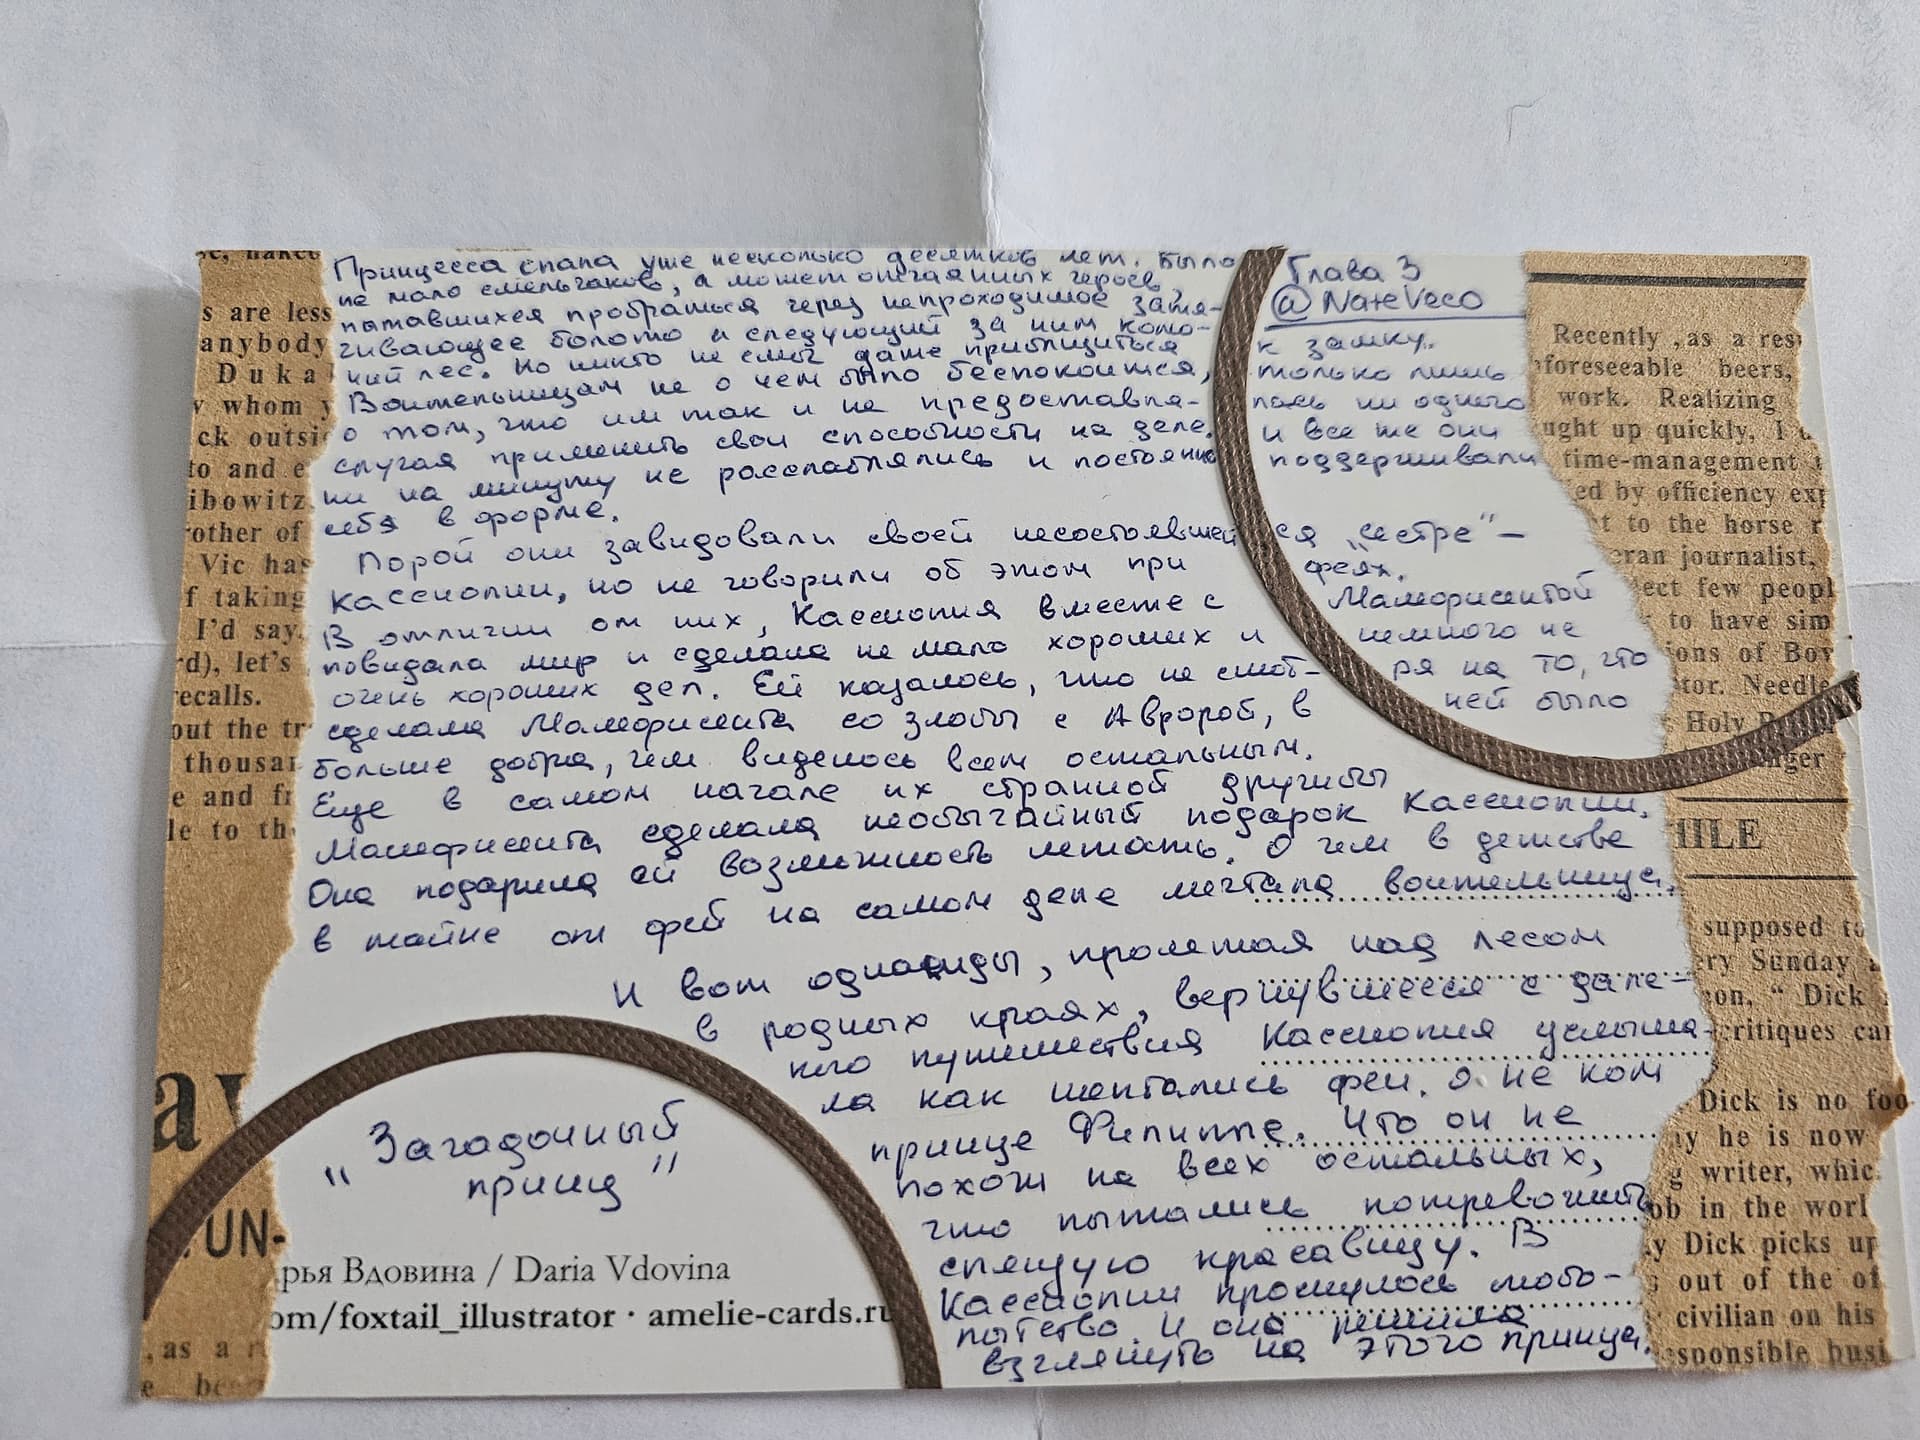 Глава 3
@NateVeco
Принцесса спала уже несколько десятков лет. Было
не мало смельчаков, а может отчаянных героев
пытавшихся пробраться через непроходимое затя-
гивающее болото и следующий за ним колю-
чий лес. Но никто не смог даже приблизиться к замку.
Воительницам не о чем было беспокоится, только лишь
о том, что им так и не предоставля- лось ни одного
случая применить свои способности на деле. и все же они
ни на минуту не расслаблялись и постоянно поддерживали
себя в форме.
Порой они завидовали своей несостоявшейся „сестре" –
Кассиопии, но не говорили об этом при феях.
В отличии от них, Кассиопия вместе с Малефисентой
повидала мир и сделала не мало хороших и немного не
очень хороших дел. Ей казалось, что не смот- ря на то, что
сделала Малефисента со злобы с Авророй, в ней было
больше добра, чем виделось всем остальным.
Еще в самом начале их странной дружбы
Малефисента сделала необычайный подарок Кассиопии.
Она подарила ей возможность летать. О чем в детстве
в тайне от фей на самом деле мечтала воительница.
И вот однажды, пролетая над лесом
в родных краях, вернувшееся с дале-
кого путешествия Кассиопия услыша-
ла как шептались феи. о неком
принце Филиппе. Что он не
похож на всех остальных,
что пытались потревожить
спящую красавицу. В
Кассиопии проснулось любо-
пытство. И она решила
взглянуть на этого принца.
"Загадочный
принц"
рья Вдовина / Daria Vdovina
om/foxtail_illustrator · amelie-cards.ru
s are less
anybody
Duka
whom y
ck outsi
to and e
ibowitz
rother of
Vic has
f taking
I'd say
rd), let's
recalls.
out the tr
thousan
e and fr
le to th
av
UN-
, as a r
e bee
Recently , as a res
foreseeable beers,
work. Realizing
ught up quickly, I
time-management
ed by officiency exp
t to the horse r
eran journalist,
ect few peopl
to have sim
ions of Boy
tor. Needle
Holy
nger
HILE
supposed to
ery Sunday
on, “ Dick
critiques can
Dick is no foo
y he is now
g writer, whic
ob in the worl
y Dick picks up
out of the of
civilian on his
sponsible busi